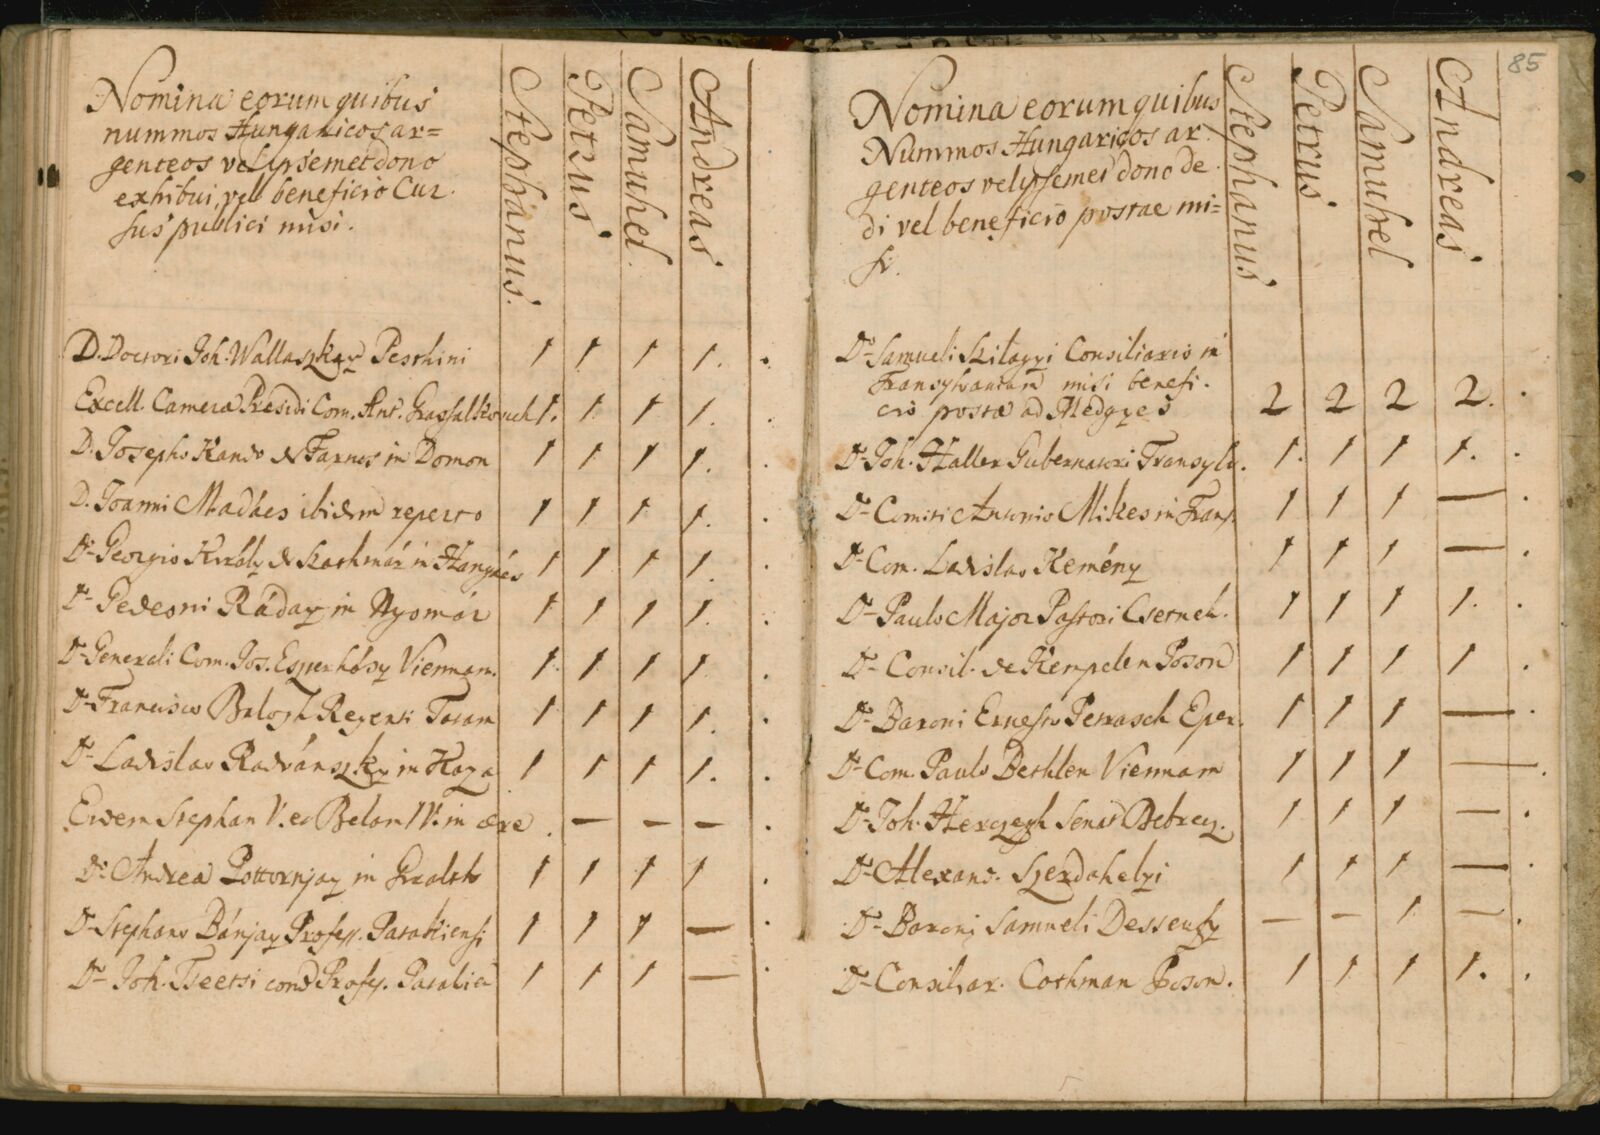 Nomina eorum quibus
nummos Hungaricos ar=
genteos vel ipsemet dono
exhibui, vel beneficio Cur
sus publici misi.
Stephanus.
Petrus
Samuhel.
Andreas
D. Doctori Joh. Wallaszkay Pesthini 1 1 1 1.
Excell. Cameræ Præsidi Com. Ant. Grassalkovich 1. 1. 1 1.
D. Josepho Kando de Farnos in Domon 1 1 1 1.
D. Joanni Madács ibidem reperto 1 1 1 1.
Dno Georgio Király de Szathmár in Hangács 1 1 1 1.
Dno Gedeoni Ráday in Nyomár 1 1 1 1.
Dno Generali Com. Jos. Eszterházy Viennam. 1. 1 1 1.
Dno Francisco Balogh Regenti Patam 1 1 1 1.
Dno Ladislao Radvánszky in Kaza 1 1 1 1.
Eidem Stephan V. et Belam IV. in ære . — — —
Dno Andreæ Pottornyay in 1 1 1 1
Dno Stephano Bányay Profess. Patakiensi 1 1 1 —
Dno Joh. Tsetsi cond Profes. Patakien 1 1 1 —
85
Nomina eorum quibus
Nummos Hungaricos ar
genteos vel ipsemet dono de
di vel beneficio postae mi=
si.
Stephanus
Petrus
Samuhel
Andreas
Dno Samueli Szilagyi Consiliario in
Transylvaniam misi benefi.
cio postæ ad Medgyes 2 2 2 2.
Dno Joh. Haller Gubernatori Transylv. 1. 1 1 1.
Dno Comiti Antonio Mikes in Trans. 1 1 1 —
Dno Com. Ladislao Kemény 1 1 1 —
Dno Paulo Major Pastori Csetnek. 1 1 1 1.
Dno Consil. de Kempelen Poson 1 1 1 1
Dno Baroni Ernesto Petrasch Eper. 1 1 1 —
Dno Com. Paulo Bethlen Viennam 1 1 1 —
Dno Joh. Herczegh Senat Debrecz. 1 1 1 —
Dno Alexand. Szerdahelyi 1 1 1 —
Dno Baroni Samueli Dessewfy — — 1 —
Dno Consiliar. Cothman Poson. 1 1 1 1.